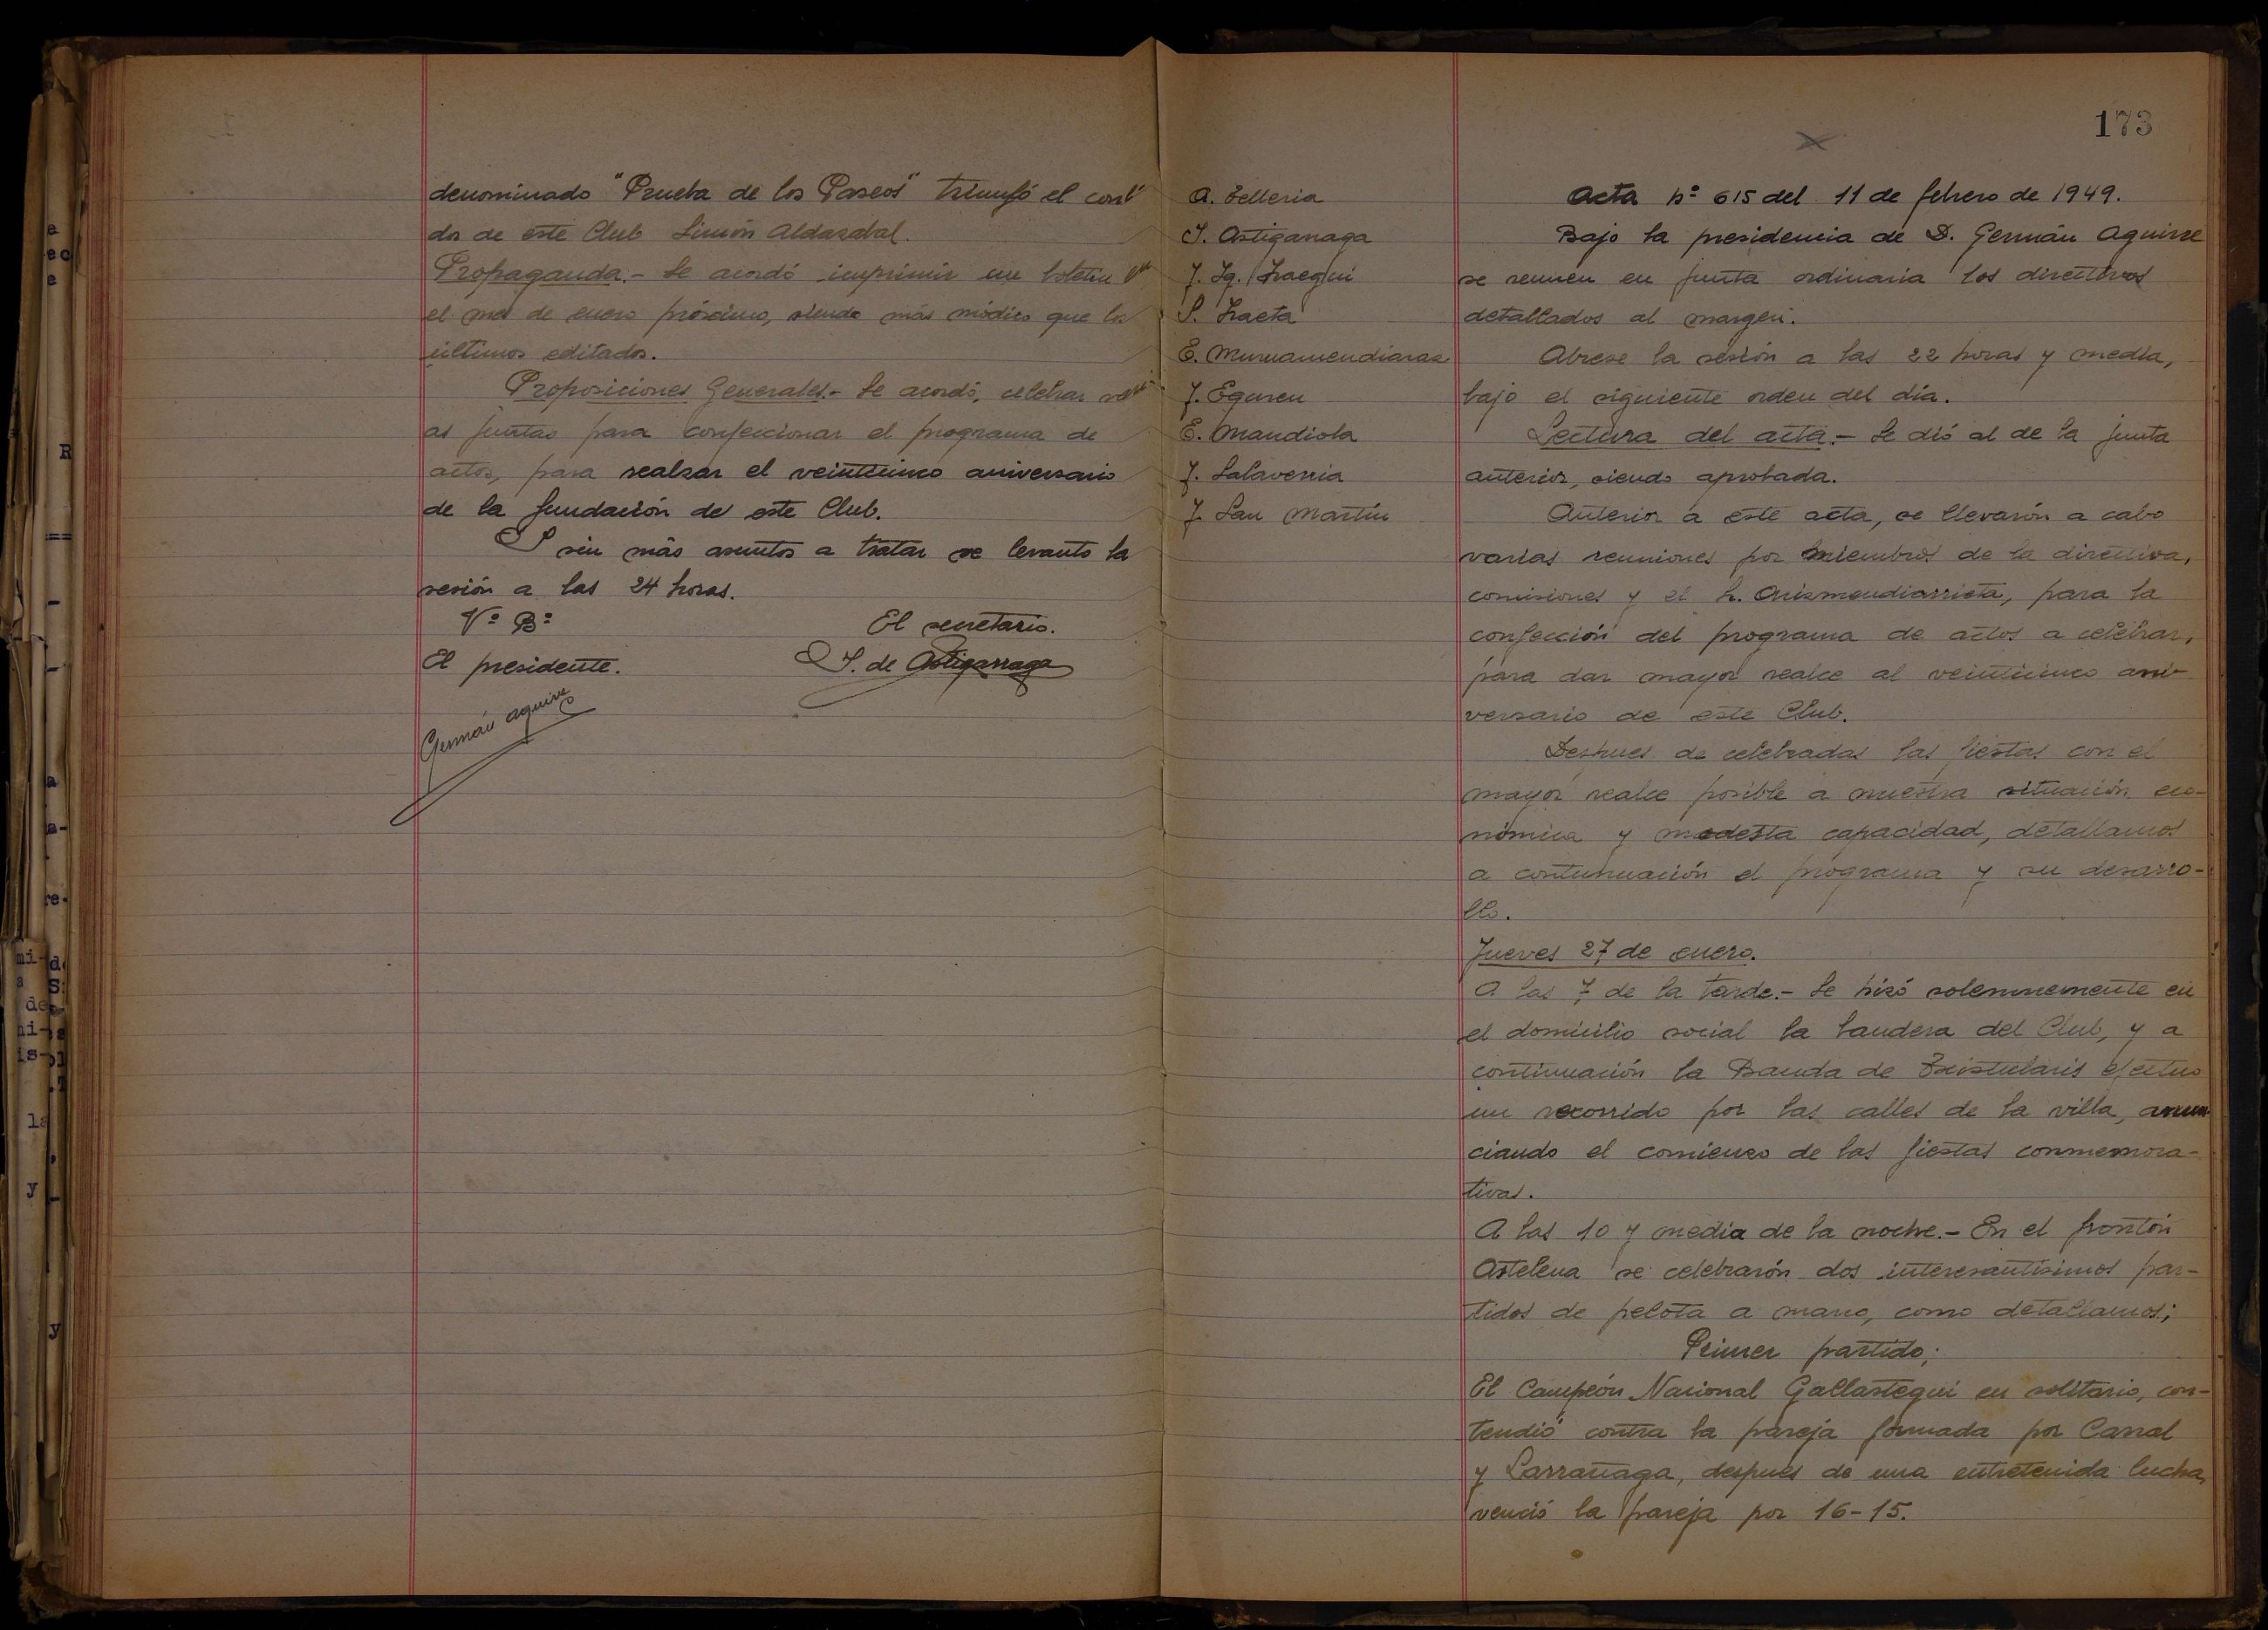 denominado "Prueba de los Paseos" triunfó el
dor de este Club Simón Aldazabal.
Propaganda.- Se acordó imprimir un boletin
el mes de enero próximo, siendo más módico que los
últimos editados.
Proposiciones Generales.- Se acordó, celebrar
as juntas para confeccionar el programa de
actos, para realzar el veinticinco aniversario
de la fundación de este Club.
Y sin más asuntos a tratar se levanto la
sesión a las 24 horas.
Vº Bº
El secretario.
El presidente.
Y. de Astigarraga
Germán Aguirre
173
A. Telleria
Y. Astigarraga
J. Ig. Iraegui
S. Iraeta
E. Muruamendiaraz
J. Eguren
E. Mandiola
J. Salaverria
J. San Martin
Acta nº 615 del 11 de febrero de 1949.
Bajo la presidencia de D. Germán Aguirre
se reunen en junta ordinaria los directivos
detallados al margen.
Abrese la sesión a las 22 horas y media,
bajo el siguiente orden del día.
Lectura del acta.- Se dió al de la junta
anterior, siendo aprobada.
Anterior a este acta, se llevarón a cabo
varias reuniones por miembros de la directiva,
comisiones y el S. Arizmendiarrieta, para la
confección del programa de actos a celebrar,
para dar mayor realce al veinticinco ani-
versario de este Club.
Despues de celebradas las fiestas con el
mayor realce posible a nuestra situación eco-
nómica y modesta capacidad, detallamos
a contunuación el programa y su desarro-
llo.
Jueves 27 de enero.
A las 7 de la tarde.- Se hizó solemnemente en
el domicilio social la bandera del Club, y a
continuación la Banda de Txistularis efectuo
un recorrido por las calles de la villa, anun
ciando el comienzo de las fiestas conmemora-
tivas.
A las 10 y media de la noche.- En el frontón
Astelena se celebrarón dos interesantísimos par-
tidos de pelota a mano, como detallamos;
Primer partido;
El Campeón Nacional Gallastegui en solitario, con-
tendió contra la pareja formada por Carral
y Larrañaga, despues de una entretenida lucha,
venció la pareja por 16-15.